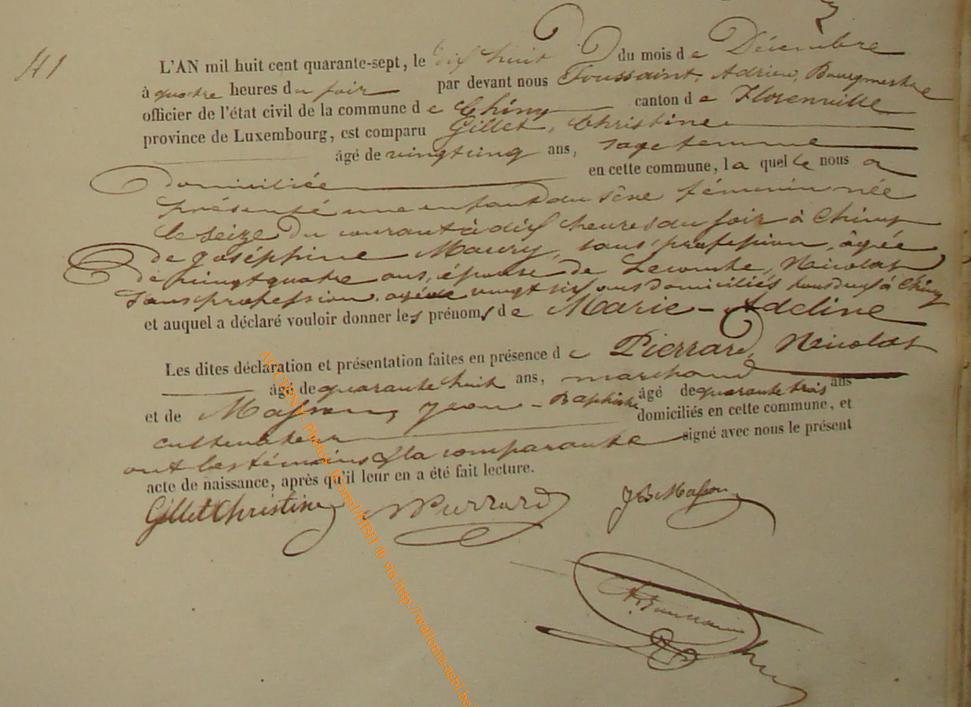 41
L'AN mil huit cent quarante-sept, le dix huit du mois de Décembre
à quatre heures du soir par devant nous Toussaint, Adrien, Bourgmestre
officier de l'état civil de la commune de Chiny canton de Florenville
province de Luxembourg, est comparu Gillet, Christine
âgé de vingt cinq ans, sage femme
domiciliée en cette commune, la quelle nous a
présenté une enfant du sèxe féminin née
le seize du courant à dix heures du soir à Chiny
de Joséphine Maury, sans profession, âgée
de vingt quatre ans, épouse de Lecomte, Nicolas
sans profession, agé de vingt six ans domiciliés tous deux à Chiny
et auquel a déclaré vouloir donner les prénoms de Marie-Adeline
Les dites déclaration et présentation faites en présence de Pierrard, Nicolas
âgé de quarante huit ans, marchand
et de Masson, Jean-Baptiste âgé de quarante trois ans
cultivateur domiciliés en cette commune, et
ont les témoins & la comparante signé avec nous le présent
acte de naissance, après qu'il leur en a été fait lecture.
Gillet Christine N Pierrard JB Masson
A Toussaint